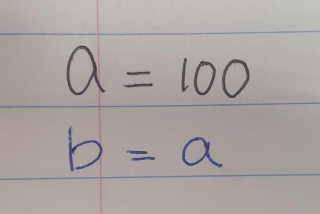 a = 100
b = a